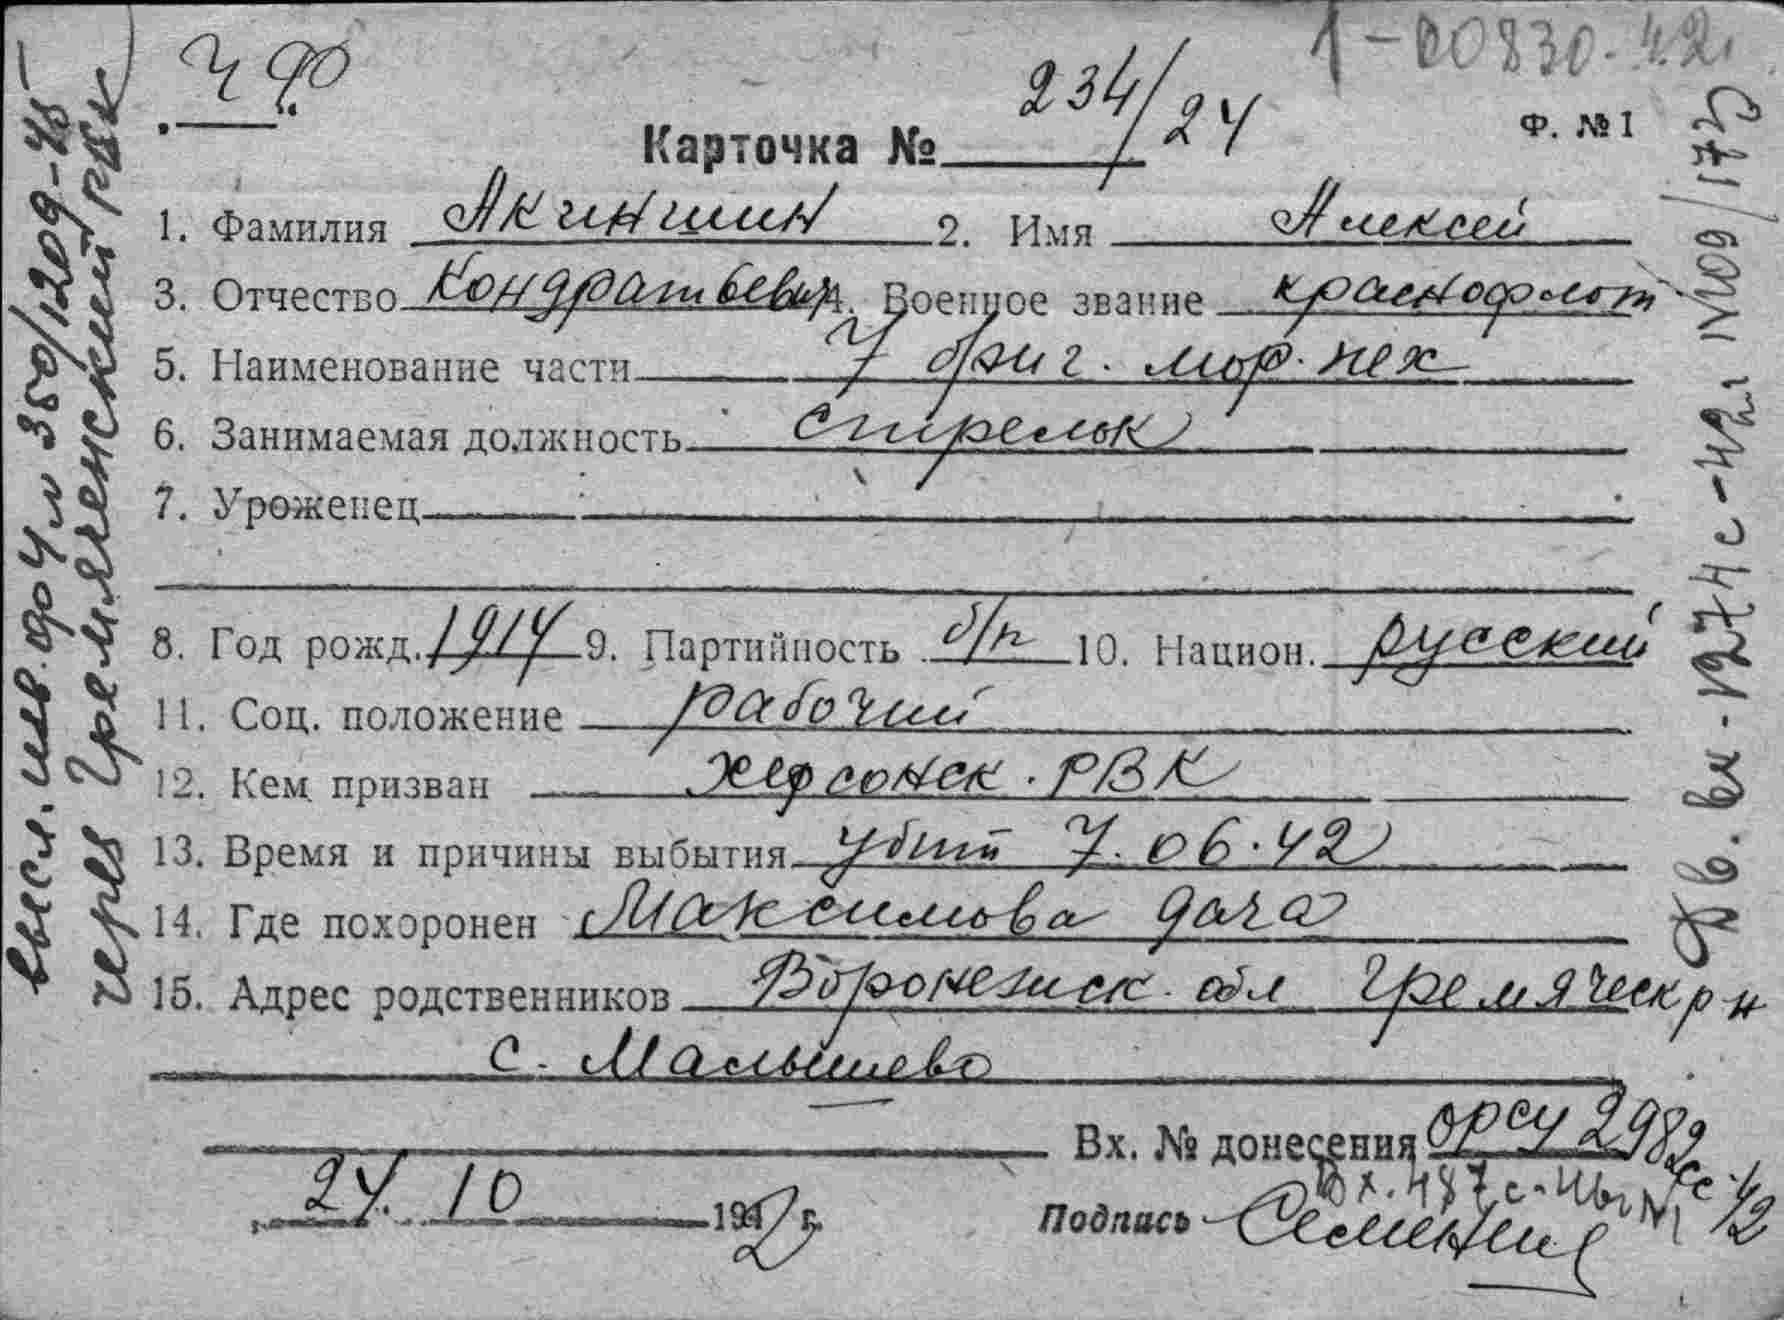 1-00830.42.
ЧФ
Карточка № 234/24
Ф. №1
1. Фамилия Акиншин 2. Имя Алексей
3. Отчество Кондратьевич 4. Военное звание краснофлот
5. Наименование части 7 бриг. мор. пех
6. Занимаемая должность стрелок
7. Уроженец
8. Год рожд. 1914 9. Партийность б/п 10. Национ. русский
11. Соц. положение рабочий
12. Кем призван Херсонск. РВК
13. Время и причины выбытия убит 7.06.42
14. Где похоронен Максимова дача
15. Адрес родственников Воронежск. обл Гремяческ р-н
с. Малышево
Вх. № донесения орсу 2982сс 42
Вх. 487с-
24. 10 1942 г.
Подпись
высл. изв. ф 4 № 350/1209-45
через Гремяченский РВК